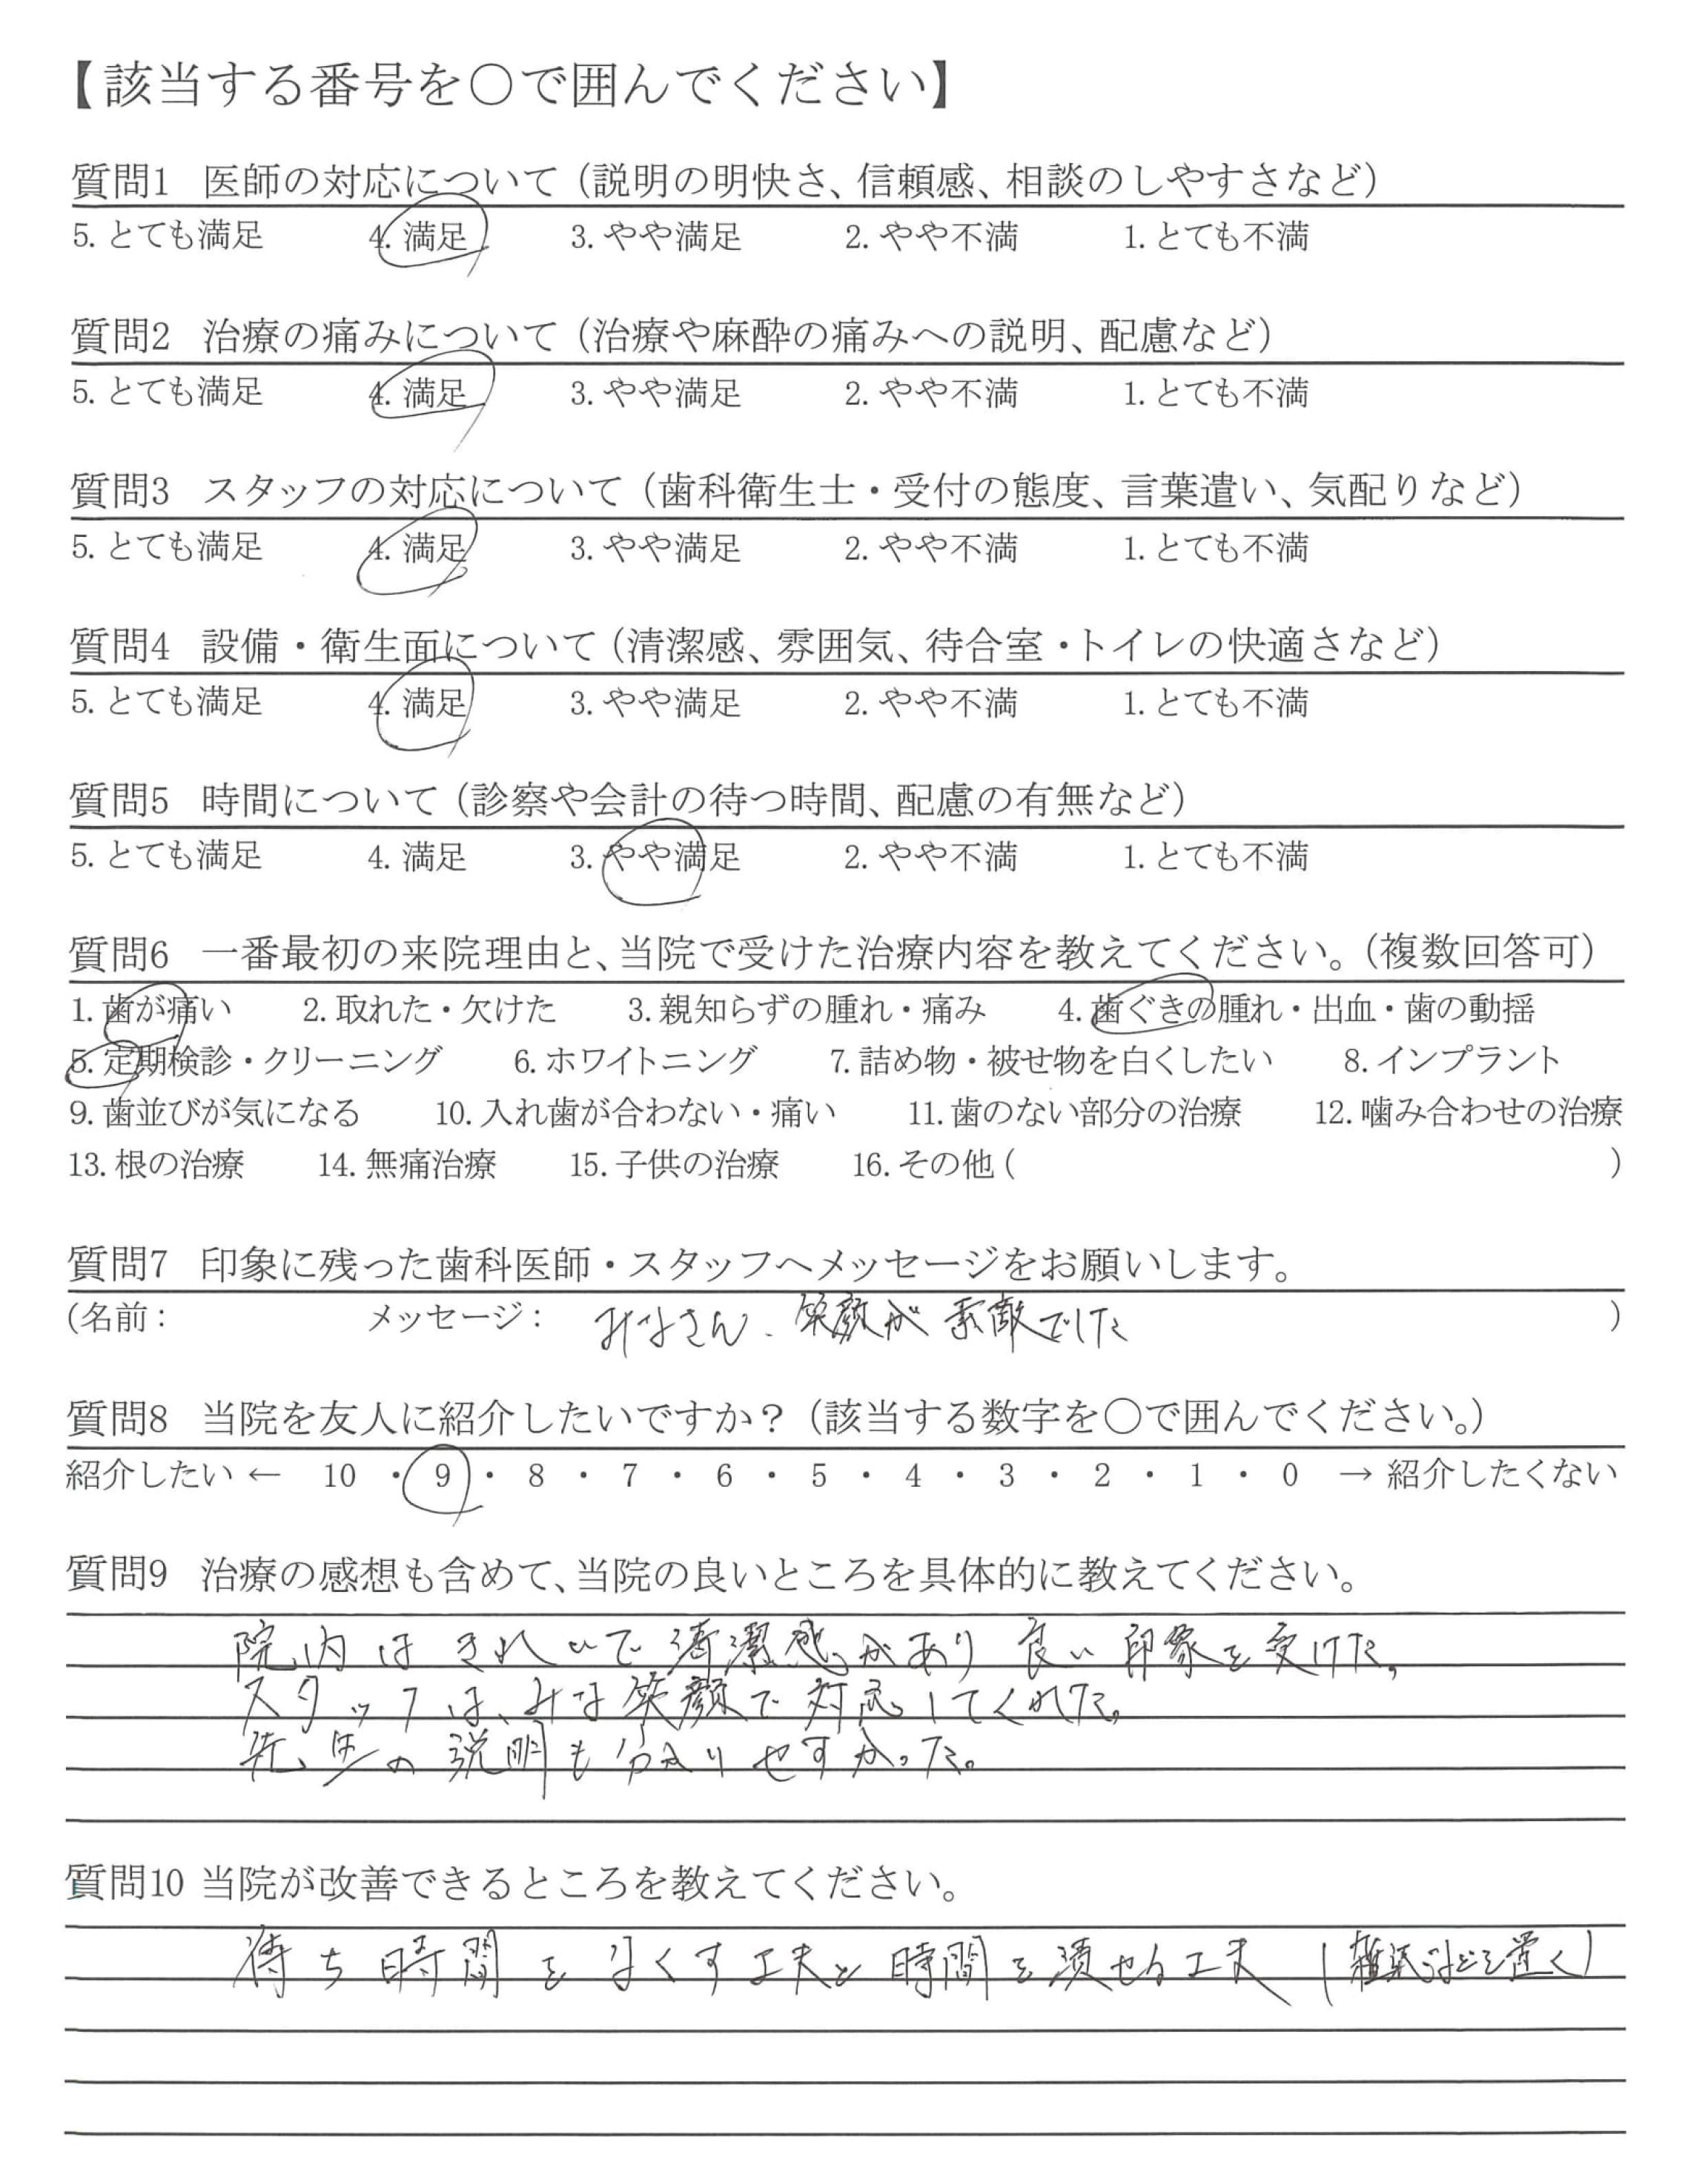 【該当する番号を〇で囲んでください】
質問1 医師の対応について（説明の明快さ、信頼感、相談のしやすさなど）
5. とても満足 4. 満足 3. やや満足 2. やや不満 1. とても不満
質問2 治療の痛みについて（治療や麻酔の痛みへの説明、配慮など）
5. とても満足 4. 満足 3. やや満足 2. やや不満 1. とても不満
質問3 スタッフの対応について（歯科衛生士・受付の態度、言葉遣い、気配りなど）
5. とても満足 4. 満足 3. やや満足 2. やや不満 1. とても不満
質問4 設備・衛生面について（清潔感、雰囲気、待合室・トイレの快適さなど）
5. とても満足 4. 満足 3. やや満足 2. やや不満 1. とても不満
質問5 時間について（診察や会計の待つ時間、配慮の有無など）
5. とても満足 4. 満足 3. やや満足 2. やや不満 1. とても不満
質問6 一番最初の来院理由と、当院で受けた治療内容を教えてください。（複数回答可）
1. 歯が痛い 2. 取れた・欠けた 3. 親知らずの腫れ・痛み 4. 歯ぐきの腫れ・出血・歯の動揺
5. 定期検診・クリーニング 6. ホワイトニング 7. 詰め物・被せ物を白くしたい 8. インプラント
9. 歯並びが気になる 10. 入れ歯が合わない・痛い 11. 歯のない部分の治療 12. 噛み合わせの治療
13. 根の治療 14. 無痛治療 15. 子供の治療 16. その他（ ）
質問7 印象に残った歯科医師・スタッフへメッセージをお願いします。
（名前： メッセージ： みなさん、笑顔が素敵でした ）
質問8 当院を友人に紹介したいですか？（該当する数字を〇で囲んでください。）
紹介したい ← 10 ・ 9 ・ 8 ・ 7 ・ 6 ・ 5 ・ 4 ・ 3 ・ 2 ・ 1 ・ 0 → 紹介したくない
質問9 治療の感想も含めて、当院の良いところを具体的に教えてください。
院内はきれいで清潔感があり良い印象を受けた。
スタッフは、みな笑顔で対応してくれた。
先生の説明も分かりやすかった。
質問10 当院が改善できるところを教えてください。
待ち時間をなくす工夫と時間を潰せる工夫（雑誌などを置く）